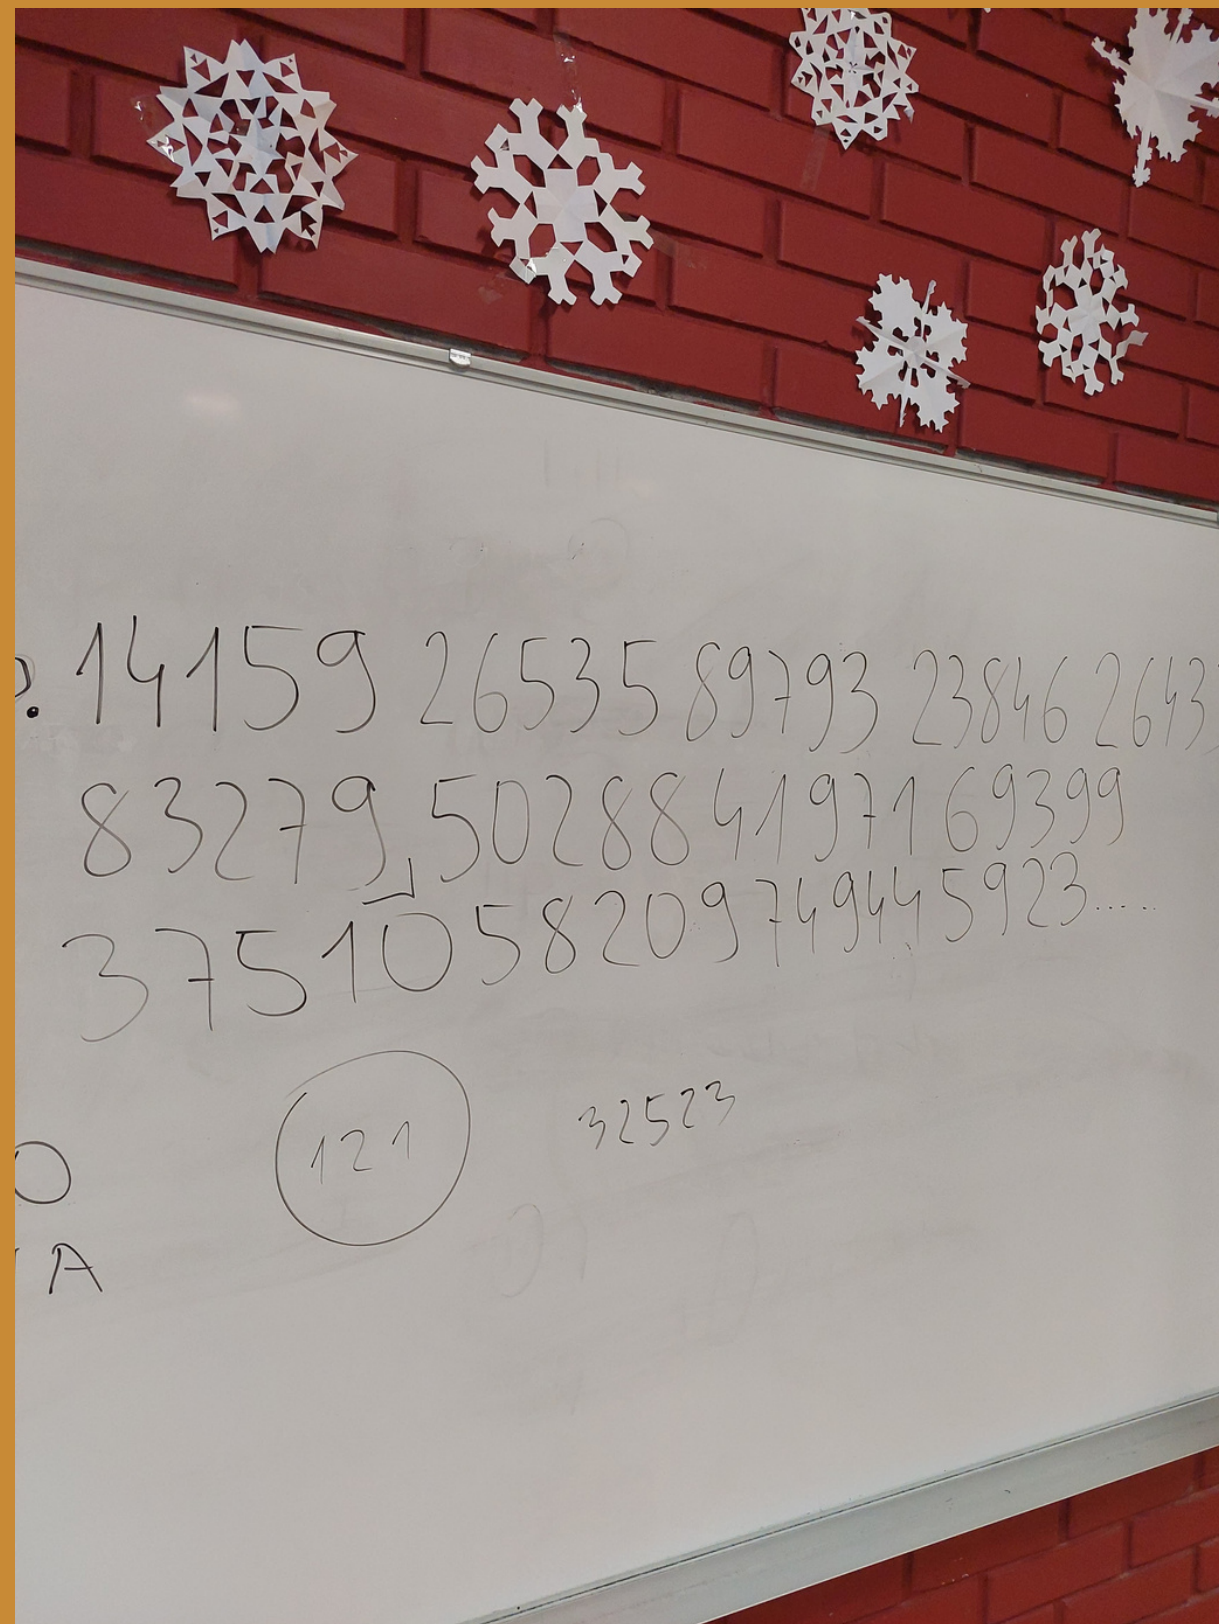 . 14159 26535 89793 23846 2643
83279 50288 41971 69399
37510 58209 74944 5923.....
121 32523
O
A